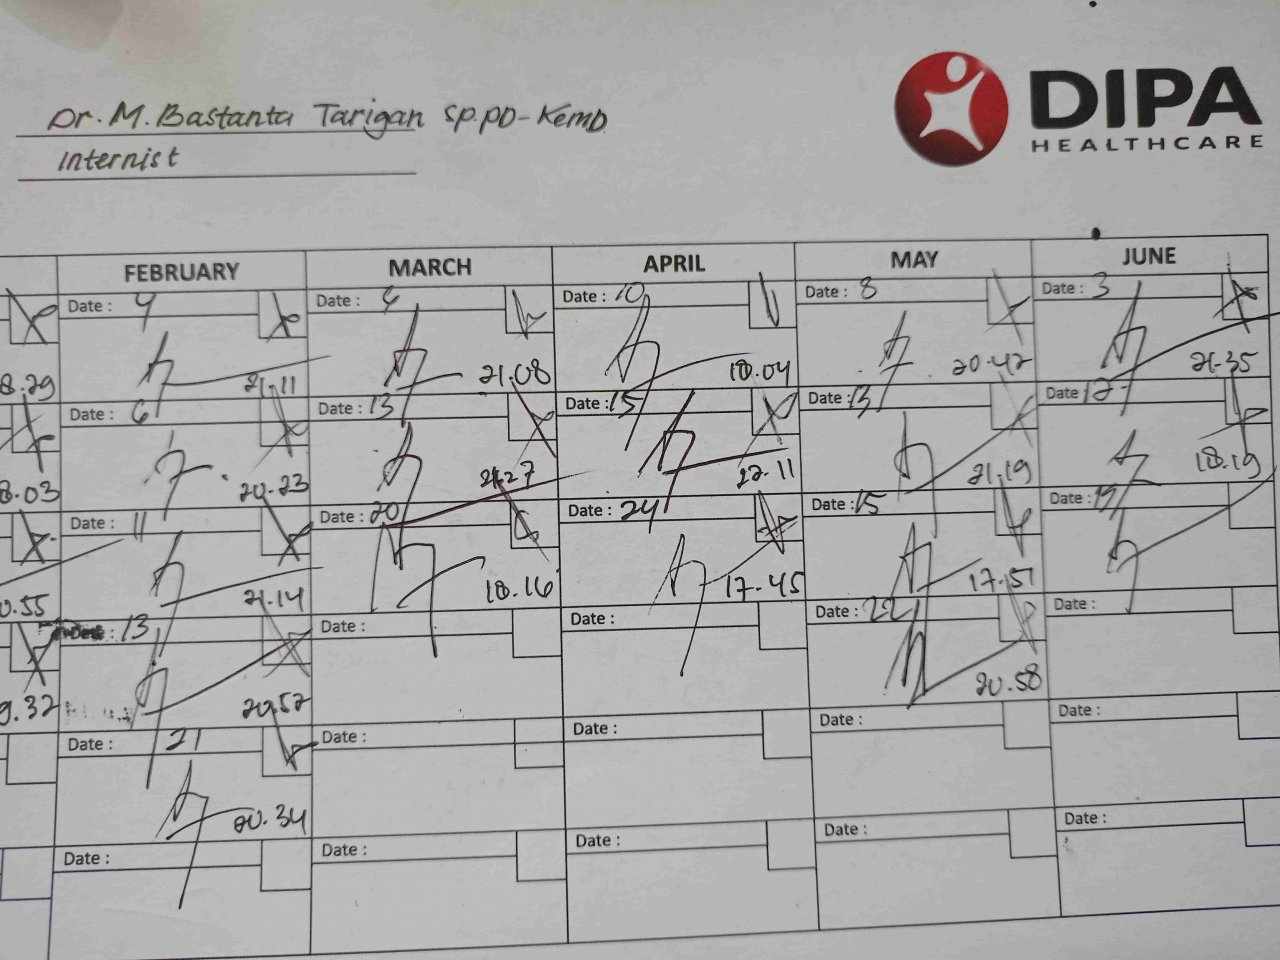 Dr. M. Bastanta Tarigan SP.PD-KEMD
Internist
DIPA
HEALTHCARE
FEBRUARY MARCH APRIL MAY JUNE
Date : 4 Date : Date : 10 Date : 8 Date : 3
8.29 21.11 21.08 18.04 20.42 21.35
Date : 6 Date : 13 Date : 15 Date : 13 Date : 12
8.03 20.23 21.27 22.11 21.19 18.19
Date : 11 Date : 20 Date : 24 Date : 15 Date : 19
0.55 21.14 18.16 17.45 17.51
Date : 13 Date : Date : Date : 22 Date :
9.32 20.52 20.58
Date : 21 Date : Date : Date : Date :
20.34
Date : Date : Date : Date : Date :